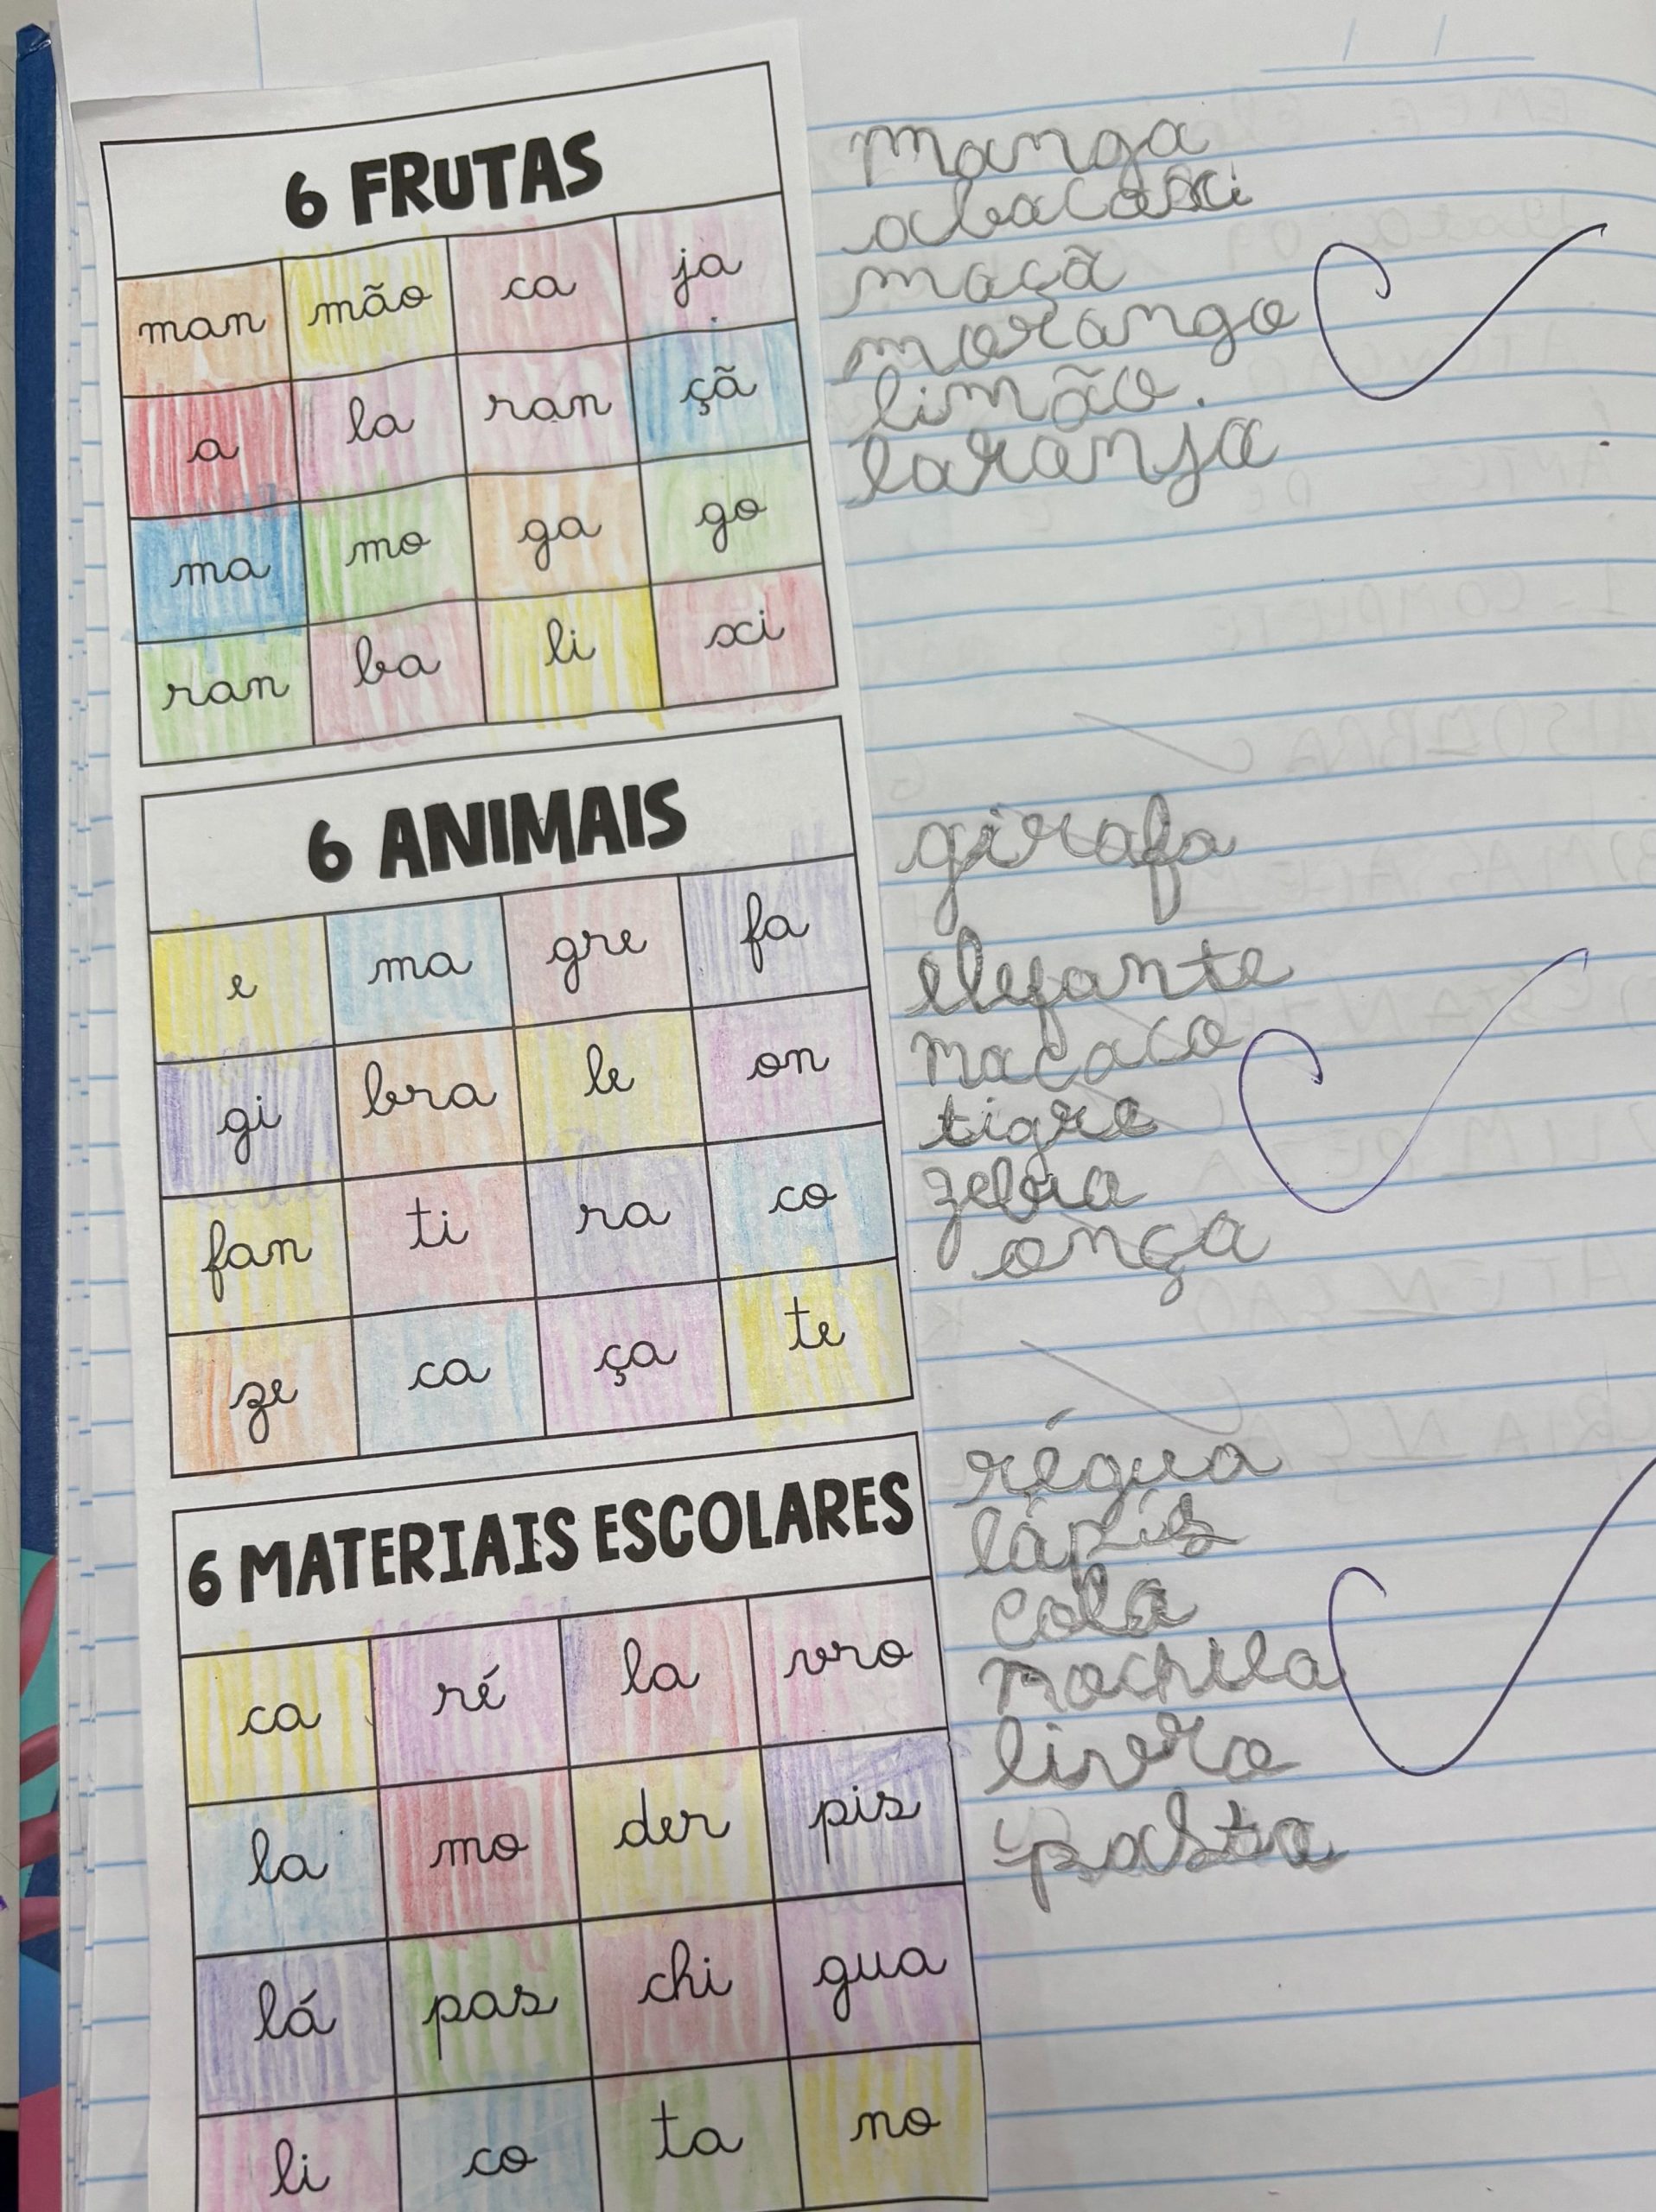 6 FRUTAS
man mão ca ja
a la ran çã
ma mo ga go
ran ba li xi
manga
abacaxi
maçã
morango
limão.
laranja
6 ANIMAIS
e ma gre fa
gi bra le on
fan ti ra co
ze ca ça te
girafa
elefante
macaco
tigre
zebra
onça
6 MATERIAIS ESCOLARES
ca ré la vro
la mo der pis
lá pas chi gua
li co ta no
régua
lápis
cola
mochila
livro
pasta